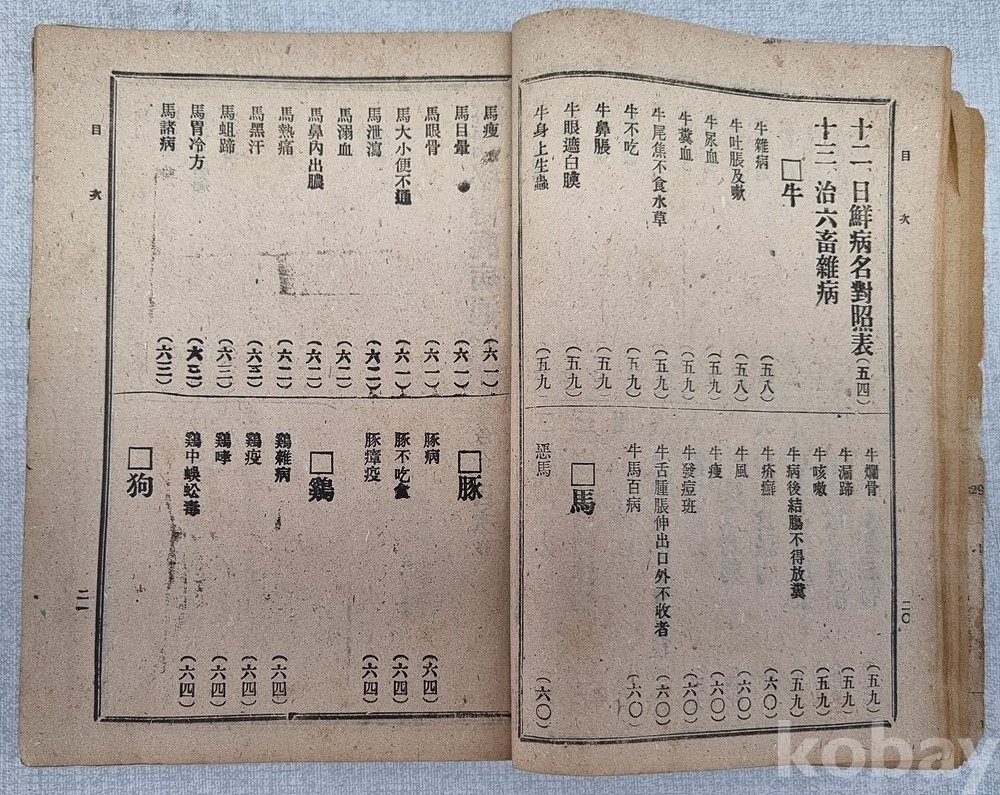 目次
十二、日鮮病名對照表(五四)
十三、治六畜雜病
□牛
牛雜病(五八)
牛吐脹及嗽(五八)
牛尿血(五九)
牛糞血(五九)
牛尾焦不食水草(五九)
牛不吃(五九)
牛鼻脹(五九)
牛眼遮白膜(五九)
牛身上生蟲(五九)
牛爛骨(五九)
牛漏蹄(五九)
牛咳嗽(五九)
牛病後結膓不得放糞(五九)
牛疥癬(六〇)
牛風(六〇)
牛瘦(六〇)
牛發痘班(六〇)
牛舌腫脹伸出口外不收者(六〇)
牛馬百病(六〇)
□馬
惡馬(六〇)
二〇
馬瘦(六一)
馬目暈(六一)
馬眼骨(六一)
馬大小便不通(六一)
馬泄瀉(六二)
馬溺血(六二)
馬鼻內出膿(六二)
馬熱痛(六二)
馬黑汗(六三)
馬蛆蹄(六三)
馬胃冷方(六三)
馬諸病(六三)
□豚
豚病(六四)
豚不吃食(六四)
豚瘴疫(六四)
□鷄
鷄雜病(六四)
鷄疫(六四)
鷄哮(六四)
鷄中蜈蚣毒(六四)
□狗
目次
二一
kobay